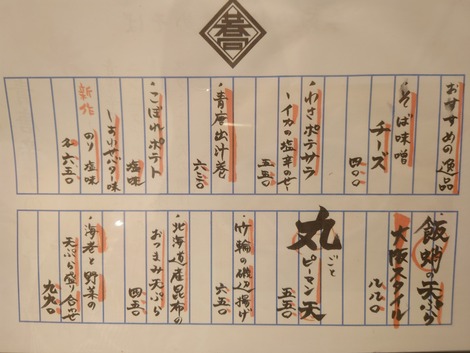 おすすめの逸品
・そば味噌
チーズ
四〇〇
・わさポテサラ
～イカの塩辛のせ～
五五〇
・青唐出汁巻
六三〇
・こぼれポテト
塩味
しおバター味
新作
のり塩味
各六五〇
飯蛸の天ぷら
大阪スタイル
八八〇
丸ごと
ピーマン天
五五〇
・竹輪の磯辺揚げ
六五〇
・北海道産昆布の
おつまみ天ぷら
四五〇
・海老と野菜の
天ぷら盛り合せ
九九〇